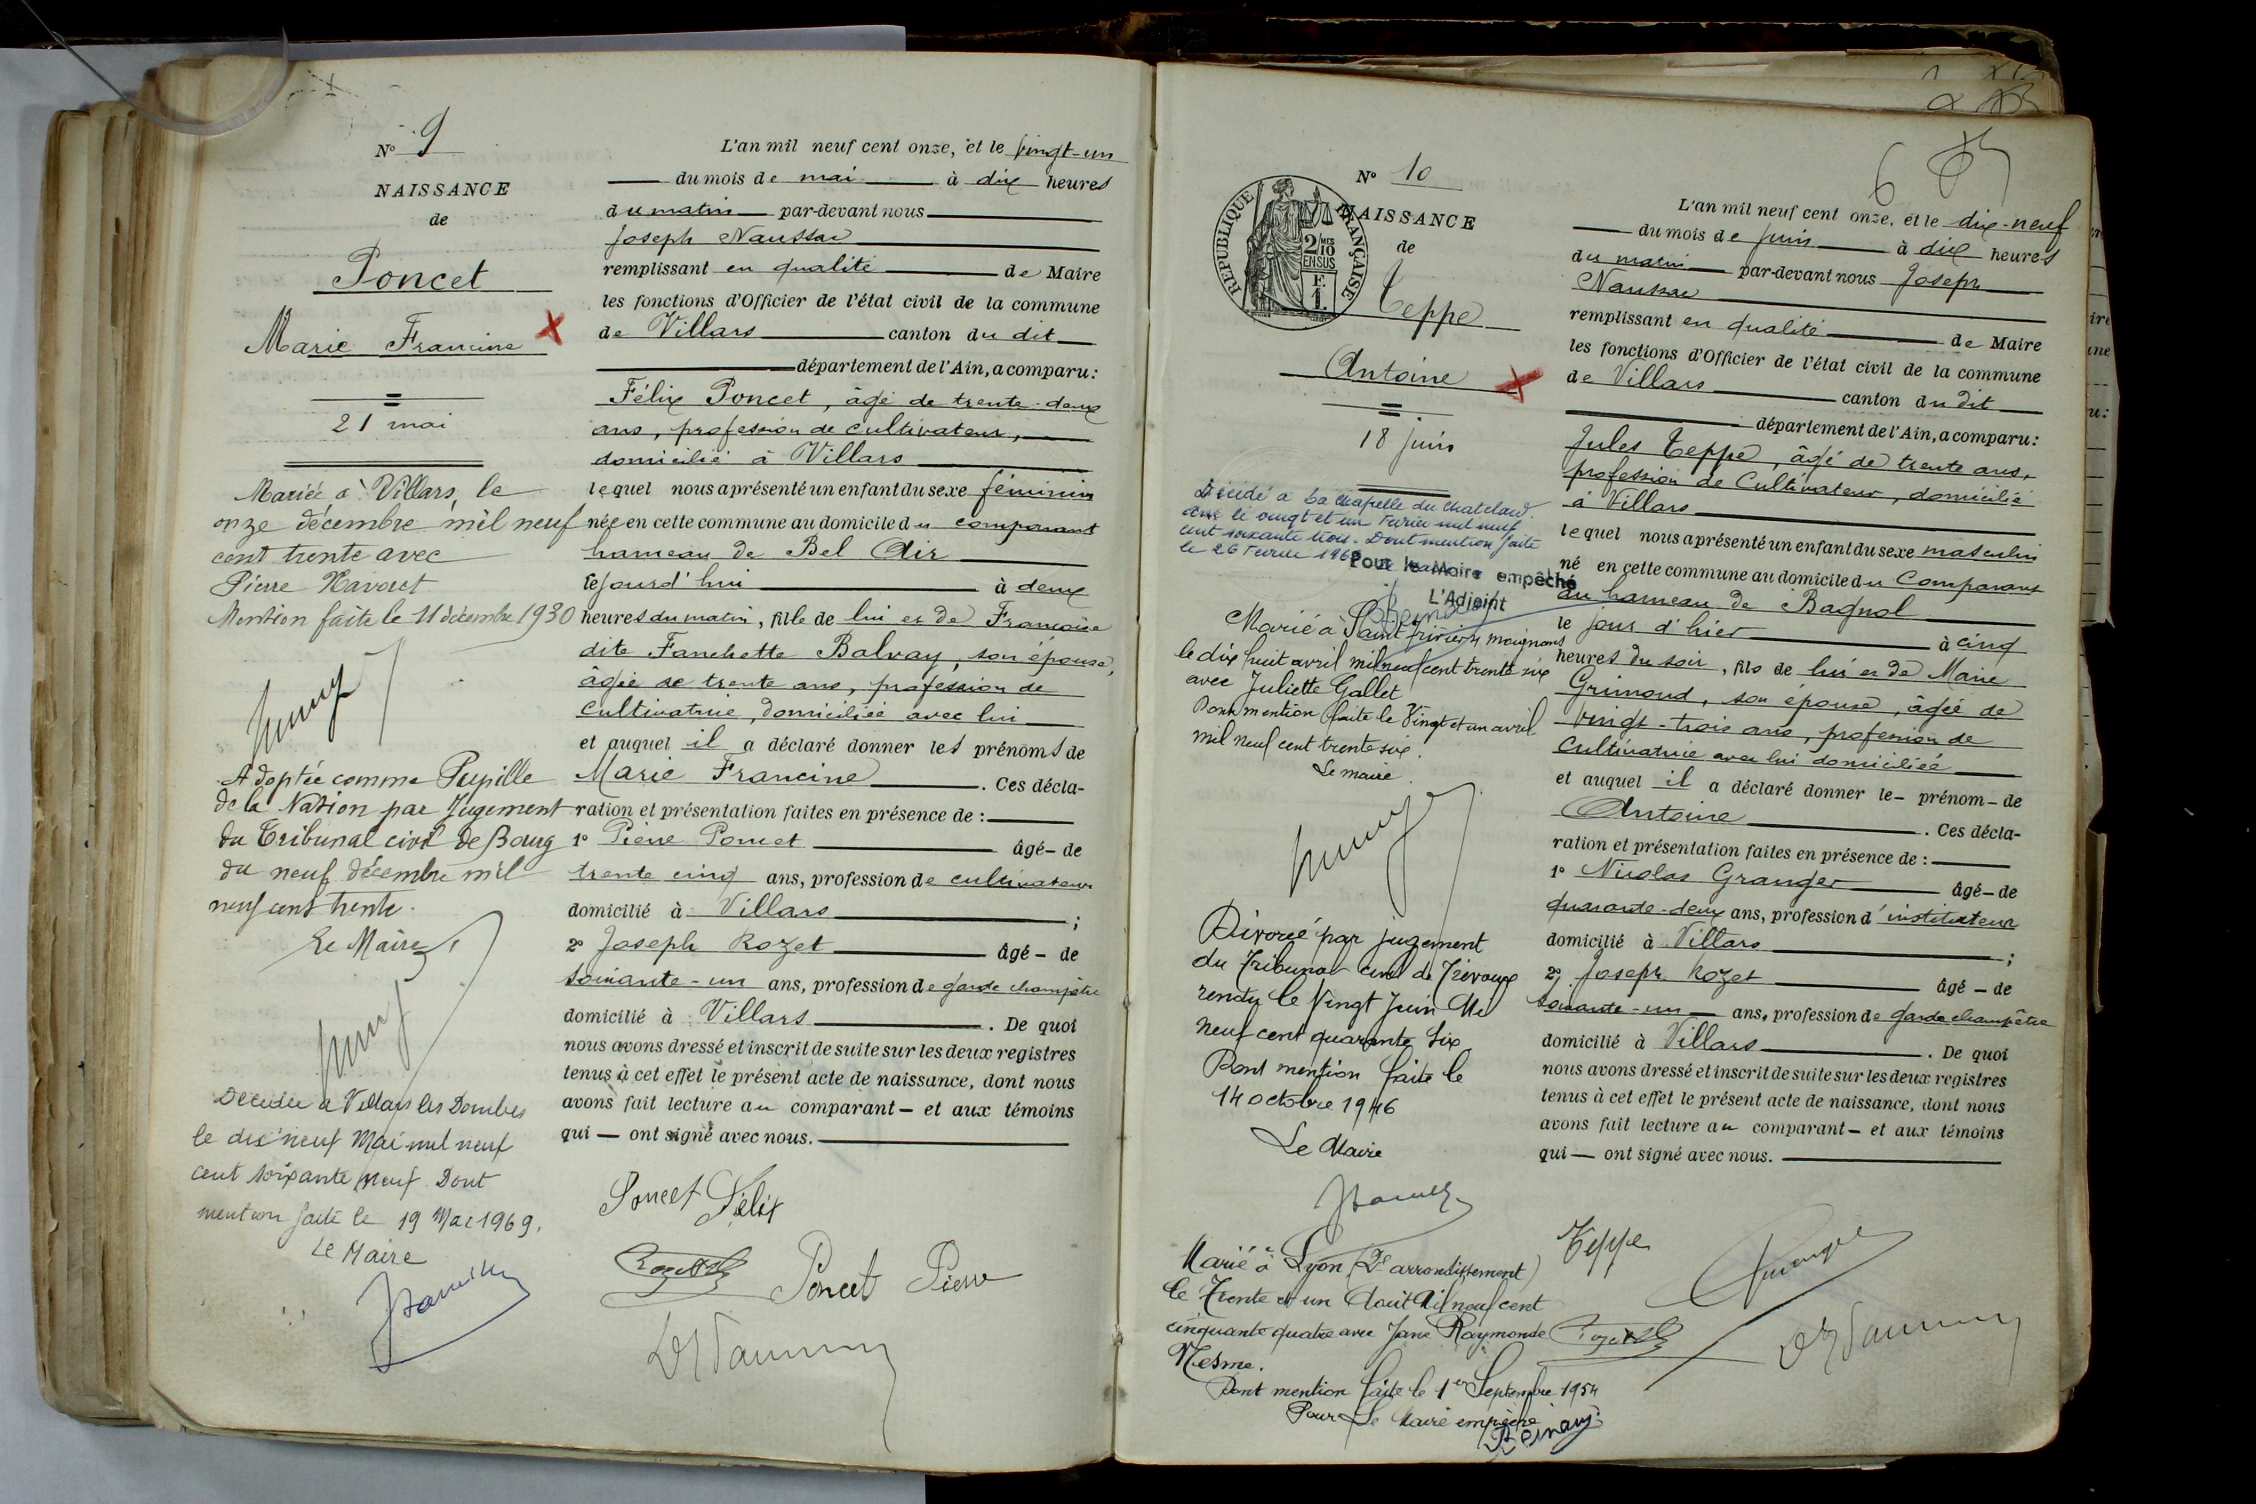 N° 9
NAISSANCE
de
Poncet
Marie Francine
21 mai
Mariée à Villars, le
onze décembre mil neuf
cent trente avec
Pierre Navoret
Mention faite le 11 décembre 1930
Adoptée comme Pupille
de la Nation par Jugement
du Tribunal civil de Bourg
du neuf décembre mil
neuf cent trente.
Le Maire
Décédée à Villars les Dombes
le dix neuf Mai mil neuf
cent soixante neuf. Dont
mention faite le 19 Mai 1969.
Le Maire
L'an mil neuf cent onze, et le vingt-un
du mois de mai à dix heures
du matin par-devant nous
Joseph Naussac
remplissant en qualité de Maire
les fonctions d'Officier de l'état civil de la commune
de Villars canton du dit
département de l'Ain, a comparu:
Félix Poncet, âgé de trente-deux
ans, profession de cultivateur,
domicilié à Villars
lequel nous a présenté un enfant du sexe féminin
née en cette commune au domicile du comparant
hameau de Bel Air
lejourd'hui à deux
heures du matin, fille de lui et de Françoise
dite Fanchette Balvay, son épouse,
âgée de trente ans, profession de
cultivatrice, domiciliée avec lui
et auquel il a déclaré donner les prénoms de
Marie Francine. Ces décla-
ration et présentation faites en présence de :
1° Pierre Poncet âgé- de
trente cinq ans, profession de cultivateur
domicilié à Villars ;
2° Joseph Rozet âgé- de
soixante-un ans, profession de garde champêtre
domicilié à Villars. De quoi
nous avons dressé et inscrit de suite sur les deux registres
tenus à cet effet le présent acte de naissance, dont nous
avons fait lecture au comparant- et aux témoins
qui — ont signé avec nous.
Poncet Félix
Poncet Pierre
N° 10
RÉPUBLIQUE FRANÇAISE
2/10 MES
EN SUS
F.
1.
NAISSANCE
de
Teppe
Antoine
18 juin
Décédé à La Chapelle du Chatelard
le vingt et un Février mil neuf
cent soixante trois. Dont mention faite
le 26 Février 1963
Pour le Maire empêché
L'Adjoint
Marié à Saint
le dix huit avril mil neuf cent trente six
avec Juliette Gallet
Dont mention faite le Vingt et un avril
mil neuf cent trente six.
Le maire.
Divorcé par jugement
du Tribunal civil de Trévoux
rendu le Vingt Juin Mil
neuf cent quarante Six
Dont mention faite le
14 octobre 1946
Le Maire
Marié à Lyon (2e arrondissement)
le Trente et un Août Mil neuf cent
cinquante quatre avec Jane Raymonde
Mesme.
Dont mention faite le 1er Septembre 1954
Pour Le Maire empêché
L'an mil neuf cent onze, et le dix-neuf
du mois de juin à dix heures
du matin par-devant nous Joseph
Naussac
remplissant en qualité de Maire
les fonctions d'Officier de l'état civil de la commune
de Villars canton du dit
département de l'Ain, a comparu:
Jules Teppe, âgé de trente ans,
profession de Cultivateur, domicilié
à Villars
lequel nous a présenté un enfant du sexe masculin
né en cette commune au domicile du Comparant
au hameau de Bagnol
le jour d'hier à cinq
heures du soir, fils de lui et de Marie
Grimond, son épouse, âgée de
vingt-trois ans, profession de
Cultivatrice avec lui domiciliée
et auquel il a déclaré donner le- prénom- de
Antoine. Ces décla-
ration et présentation faites en présence de :
1° Nicolas Granger âgé- de
quarante-deux ans, profession d'instituteur
domicilié à Villars ;
2° Joseph Rozet âgé- de
soixante-un ans, profession de garde champêtre
domicilié à Villars. De quoi
nous avons dressé et inscrit de suite sur les deux registres
tenus à cet effet le présent acte de naissance, dont nous
avons fait lecture au comparant- et aux témoins
qui — ont signé avec nous.
Teppe